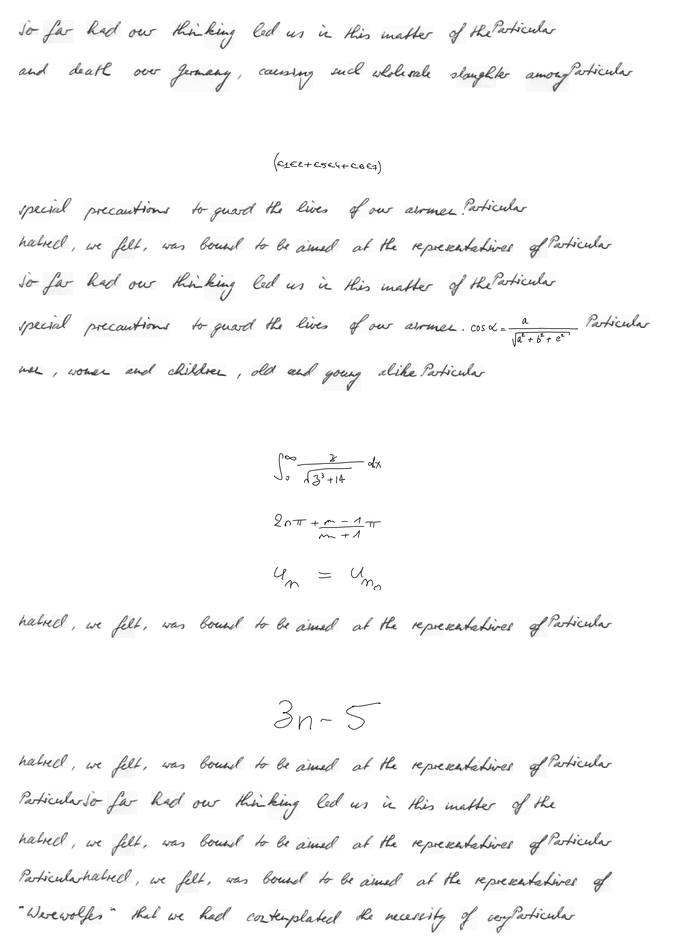 So far had our thinking led us in this matter of the Particular
and death over Germany, causing such wholesale slaughter among Particular
(c1c2+c5c4+c6c7)
special precautions to guard the lives of our airmen. Particular
hatred, we felt, was bound to be aimed at the representatives of Particular
So far had our thinking led us in this matter of the Particular
special precautions to guard the lives of our airmen. cos α = a / √(a² + b² + c²) Particular
men, women and children, old and young alike Particular
∫₀^∞ z / √(z³ + 14) dx
2nπ + (m - 1)/(m + 1) π
uₙ = uₙ₀
hatred, we felt, was bound to be aimed at the representatives of Particular
3n - 5
hatred, we felt, was bound to be aimed at the representatives of Particular
Particular So far had our thinking led us in this matter of the
hatred, we felt, was bound to be aimed at the representatives of Particular
Particular hatred, we felt, was bound to be aimed at the representatives of
"Werewolfes" that we had contemplated the necessity of very Particular